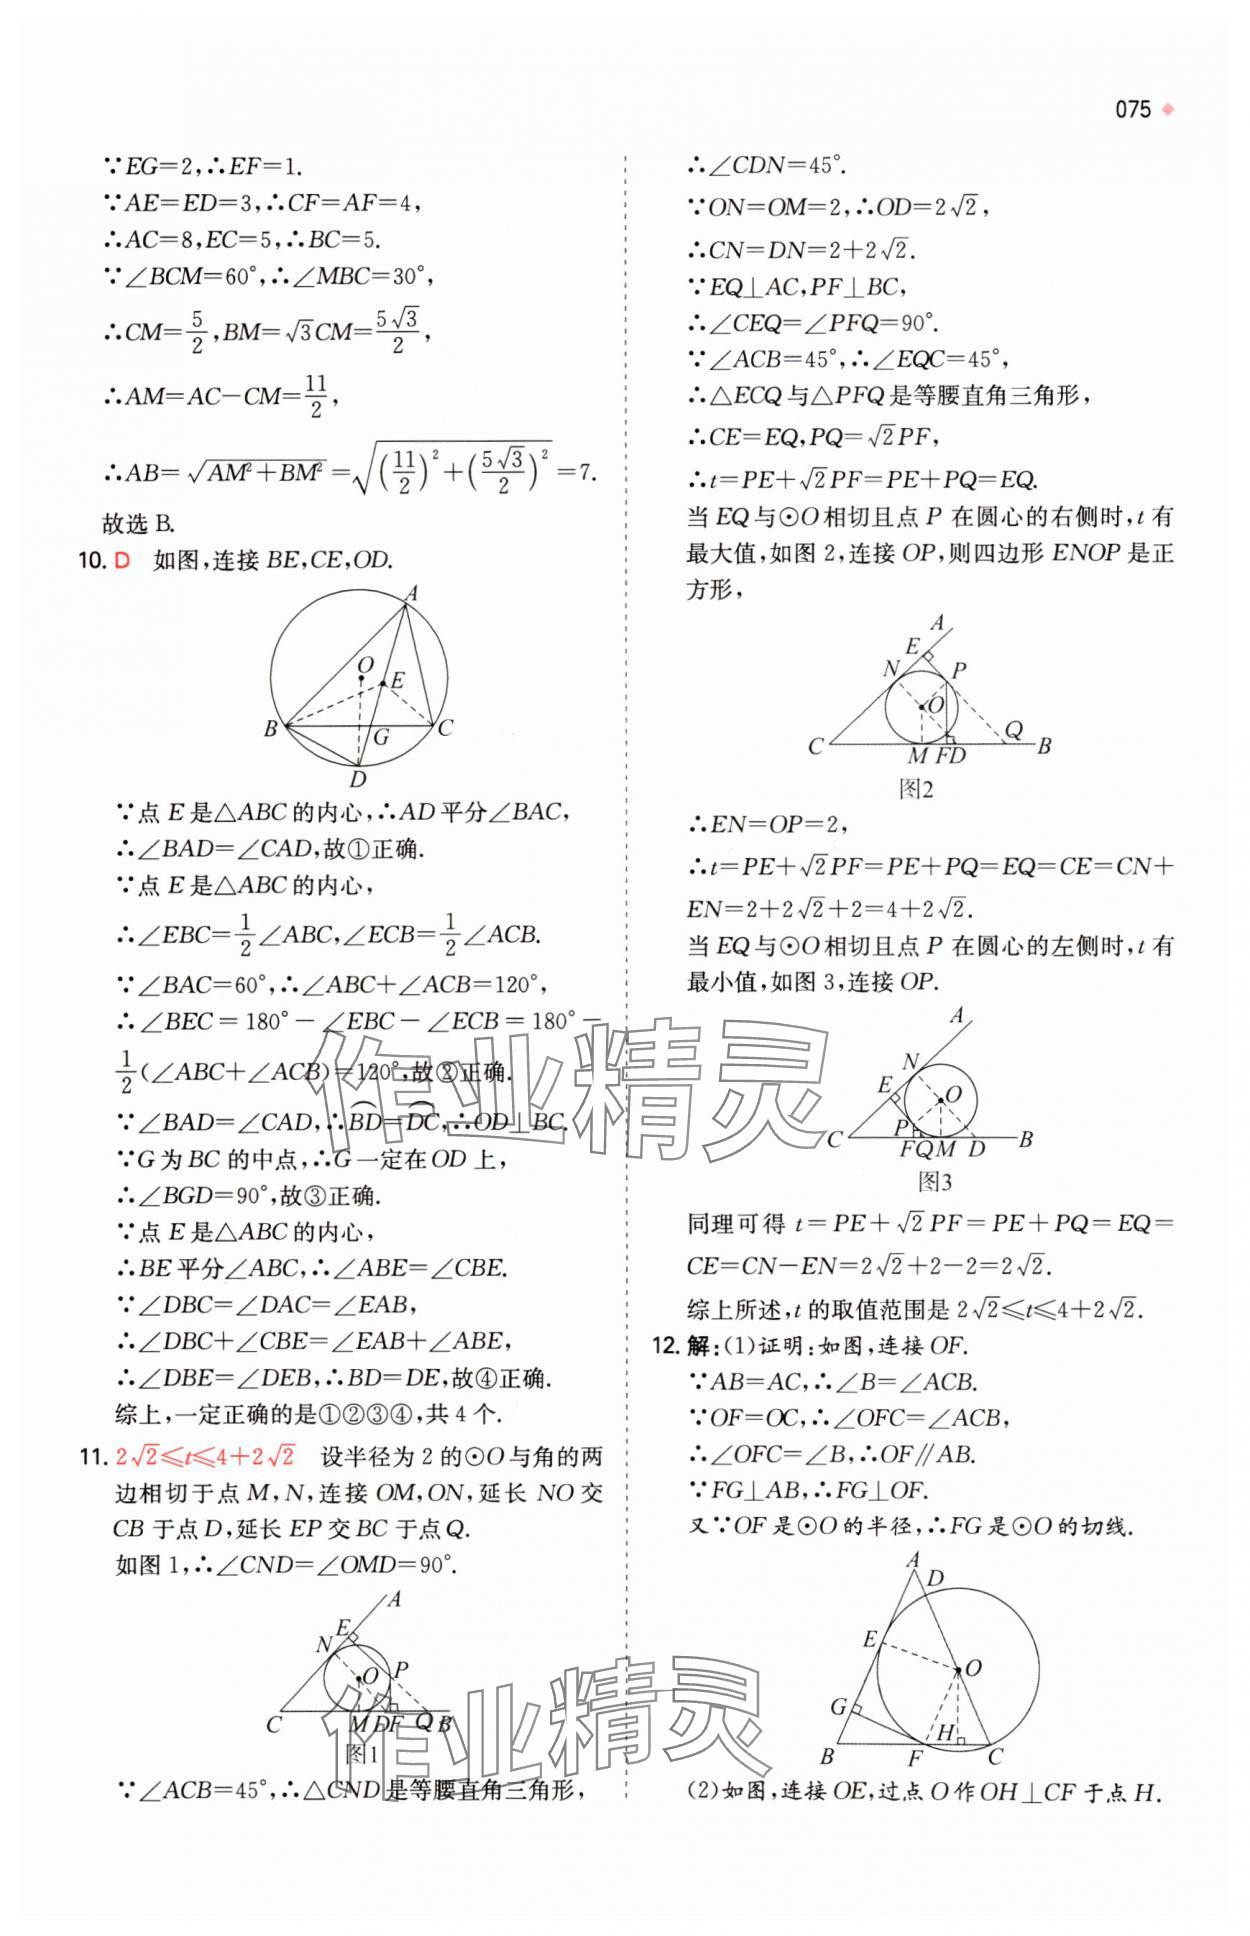 075
∵EG=2,∴EF=1.
∵AE=ED=3,∴CF=AF=4,
∴AC=8,EC=5,∴BC=5.
∵∠BCM=60°,∴∠MBC=30°,
∴CM=5/2,BM=√3CM=5√3/2,
∴AM=AC-CM=11/2,
∴AB=√(AM²+BM²)=√((11/2)²+(5√3/2)²)=7.
故选 B.
10. D 如图,连接 BE,CE,OD.
A
O
E
B
G
C
D
∵点 E 是△ABC 的内心,∴AD 平分∠BAC,
∴∠BAD=∠CAD,故①正确.
∵点 E 是△ABC 的内心,
∴∠EBC=1/2∠ABC,∠ECB=1/2∠ACB.
∵∠BAC=60°,∴∠ABC+∠ACB=120°,
∴∠BEC=180°-∠EBC-∠ECB=180°-
1/2(∠ABC+∠ACB)=120°,故②正确.
∵∠BAD=∠CAD,∴BD⌒=DC⌒,∴OD⊥BC.
∵G 为 BC 的中点,∴G 一定在 OD 上,
∴∠BGD=90°,故③正确.
∵点 E 是△ABC 的内心,
∴BE 平分∠ABC,∴∠ABE=∠CBE.
∵∠DBC=∠DAC=∠EAB,
∴∠DBC+∠CBE=∠EAB+∠ABE,
∴∠DBE=∠DEB,∴BD=DE,故④正确.
综上,一定正确的是①②③④,共 4 个.
11. 2√2≤t≤4+2√2 设半径为 2 的⊙O 与角的两
边相切于点 M,N,连接 OM,ON,延长 NO 交
CB 于点 D,延长 EP 交 BC 于点 Q.
如图 1,∴∠CND=∠OMD=90°.
A
E
N
O
P
C
M
D
F
Q
B
图1
∵∠ACB=45°,∴△CND 是等腰直角三角形,
∴∠CDN=45°.
∵ON=OM=2,∴OD=2√2,
∴CN=DN=2+2√2.
∵EQ⊥AC,PF⊥BC,
∴∠CEQ=∠PFQ=90°.
∵∠ACB=45°,∴∠EQC=45°,
∴△ECQ 与△PFQ 是等腰直角三角形,
∴CE=EQ,PQ=√2PF,
∴t=PE+√2PF=PE+PQ=EQ.
当 EQ 与⊙O 相切且点 P 在圆心的右侧时,t 有
最大值,如图 2,连接 OP,则四边形 ENOP 是正
方形,
A
E
N
P
O
Q
C
M
F
D
B
图2
∴EN=OP=2,
∴t=PE+√2PF=PE+PQ=EQ=CE=CN+
EN=2+2√2+2=4+2√2.
当 EQ 与⊙O 相切且点 P 在圆心的左侧时,t 有
最小值,如图 3,连接 OP.
A
N
E
O
P
C
F
Q
M
D
B
图3
同理可得 t=PE+√2PF=PE+PQ=EQ=
CE=CN-EN=2√2+2-2=2√2.
综上所述,t 的取值范围是 2√2≤t≤4+2√2.
12. 解:(1)证明:如图,连接 OF.
∵AB=AC,∴∠B=∠ACB.
∵OF=OC,∴∠OFC=∠ACB,
∴∠OFC=∠B,∴OF∥AB.
∵FG⊥AB,∴FG⊥OF.
又∵OF 是⊙O 的半径,∴FG 是⊙O 的切线.
A
D
E
O
G
H
B
F
C
(2)如图,连接 OE,过点 O 作 OH⊥CF 于点 H.
作业精灵
作业精灵